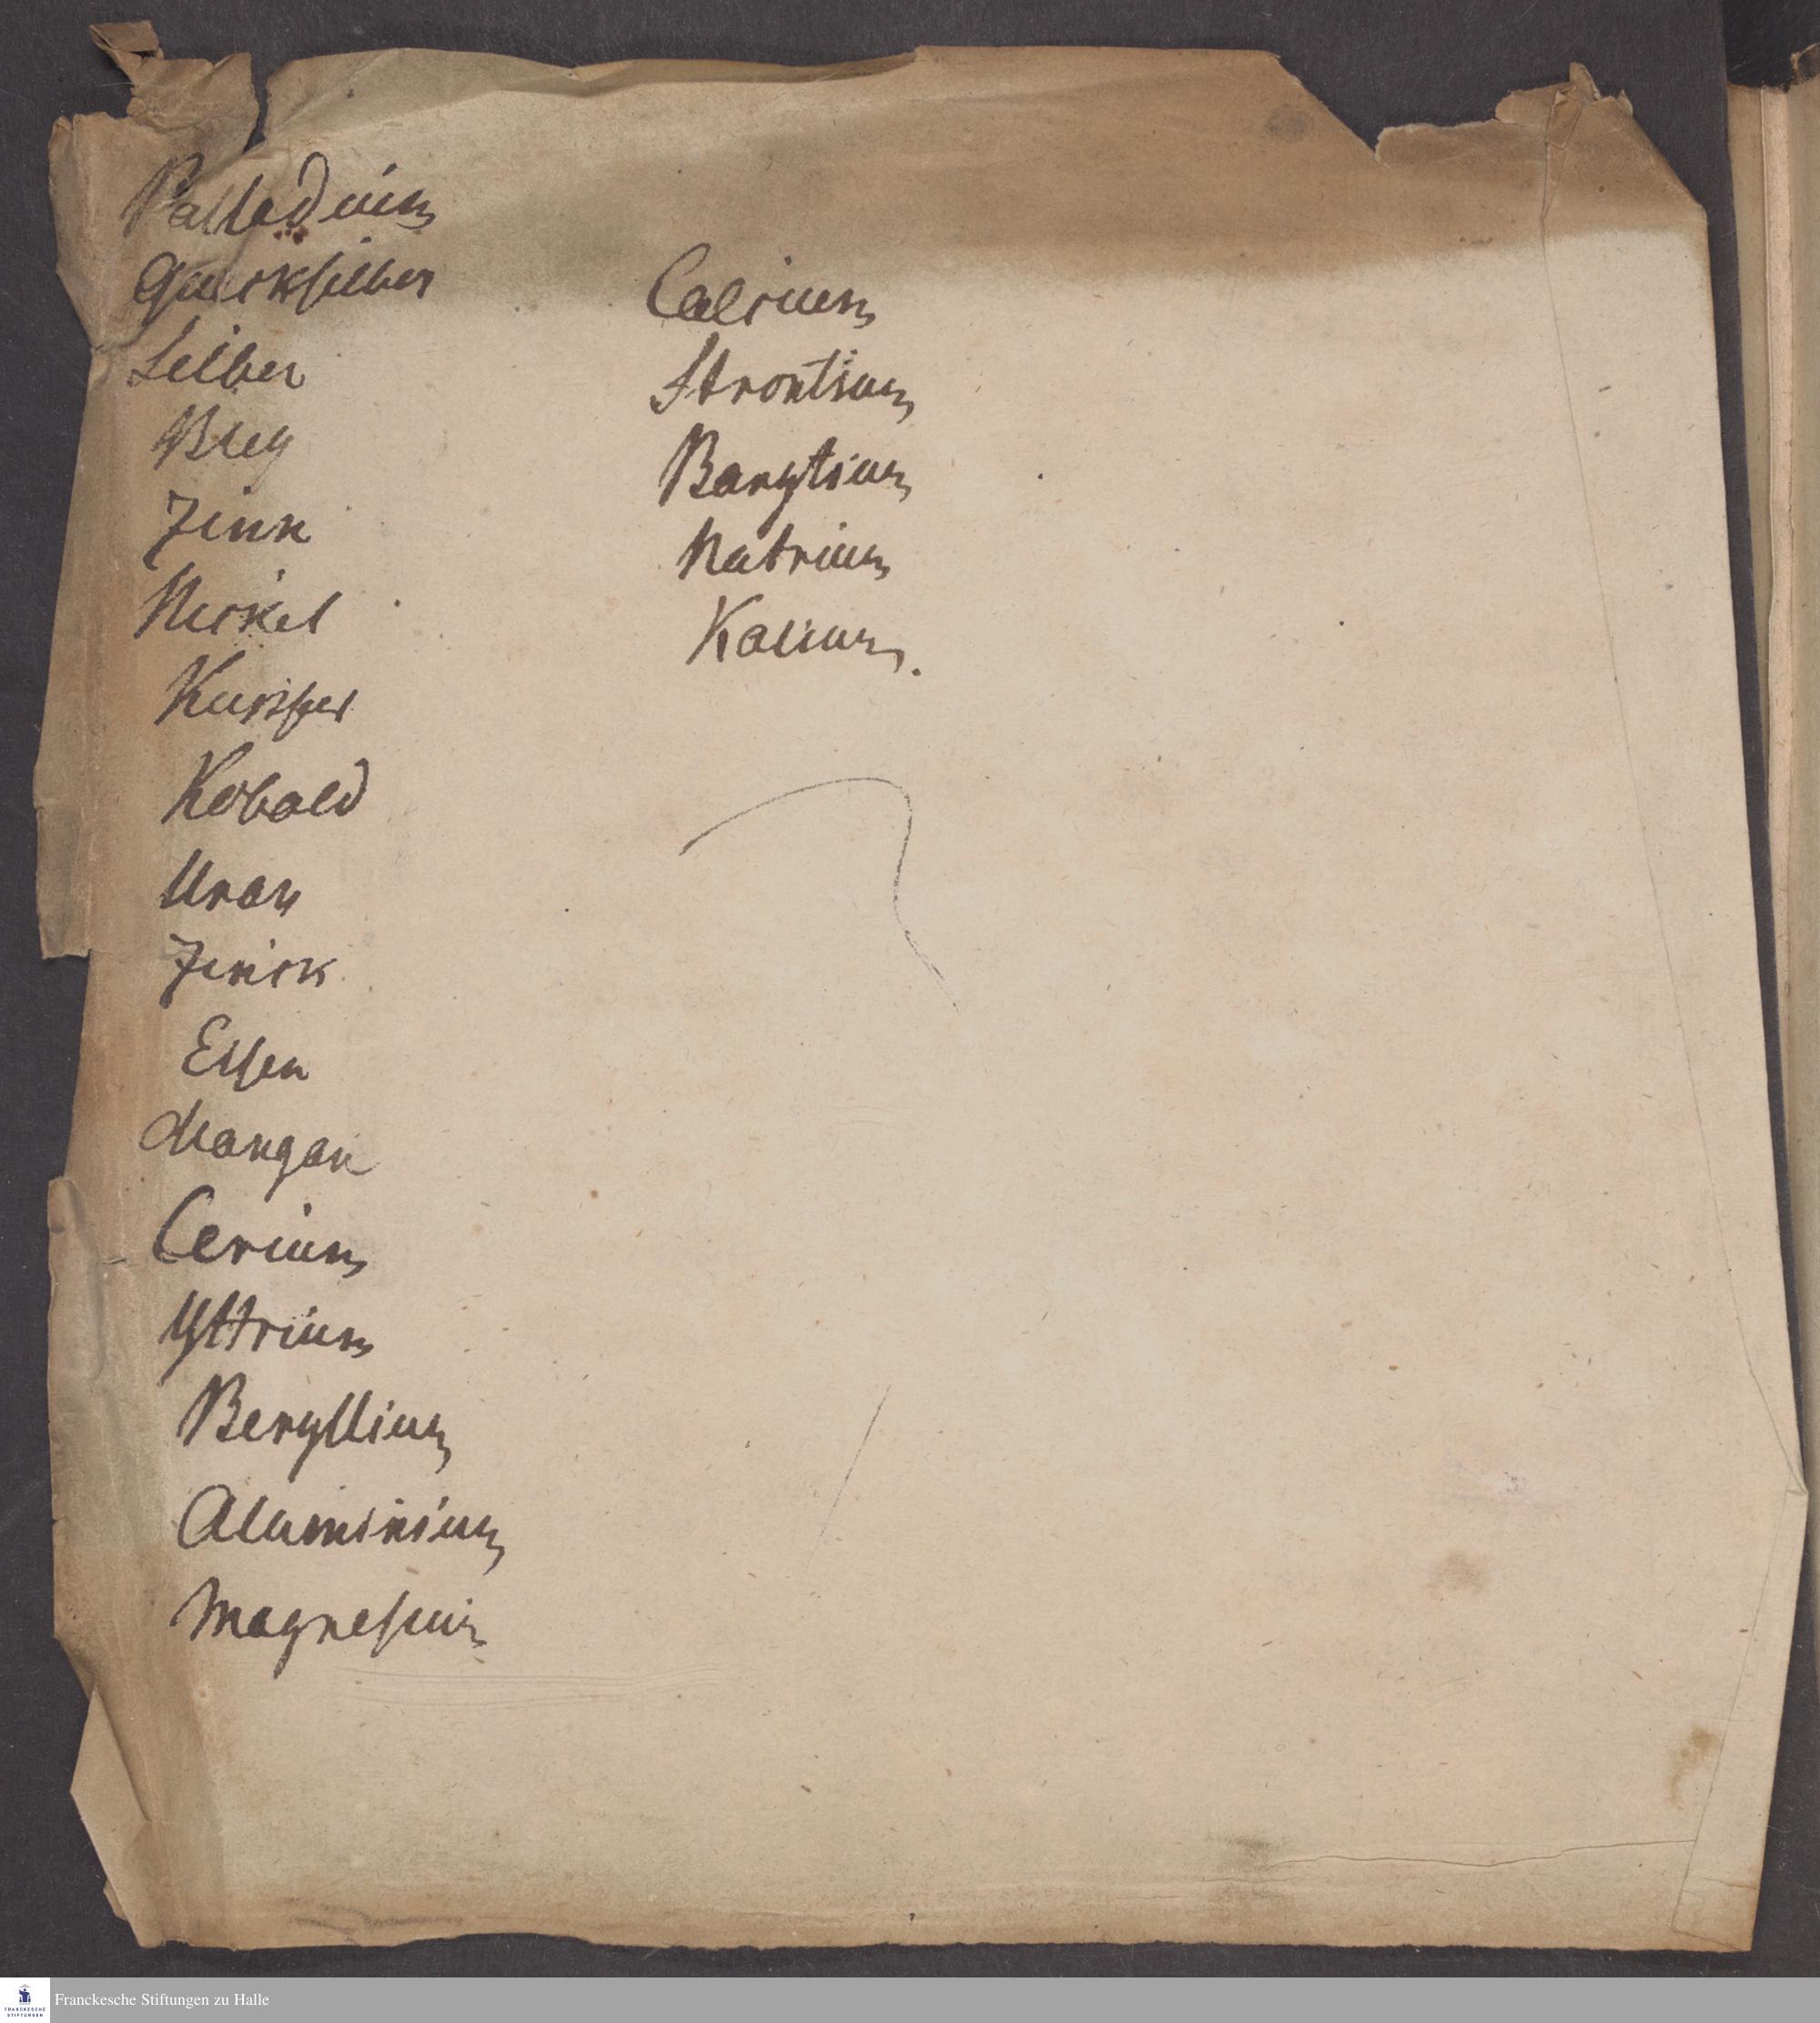 Palladium
Quecksilber
Silber
Bley
Zink
Nickel
Kupfer
Kobald
Uran
Zinck
Eisen
Mangan
Cerium
Yttrium
Beryllium
Aluminium
Magnesium
Calcium
Strontium
Barytium
Natrium
Kalium.
FRANCKESCHE
STIFTUNGEN
Franckesche Stiftungen zu Halle